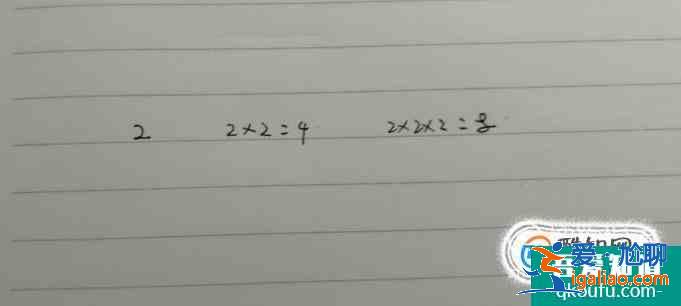 2 2×2=4 2×2×2=8
爱尬聊
igaliao.com
qksufu.com-